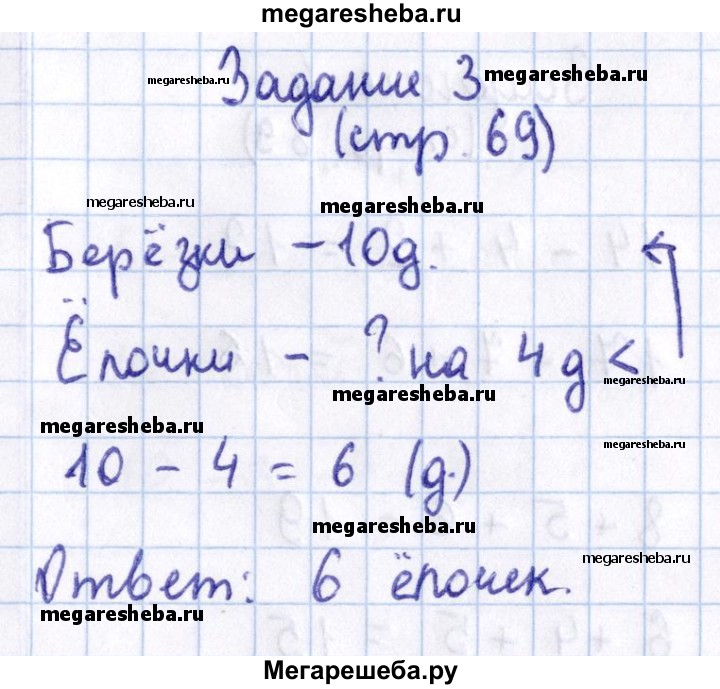 megaresheba.ru
Задание 3
megaresheba.ru
megaresheba.ru
(стр. 69)
megaresheba.ru
megaresheba.ru
Берёзки - 10 д.
Ёлочки - ? на 4 д <
megaresheba.ru
megaresheba.ru
megaresheba.ru
megaresheba.ru
10 - 4 = 6 (д.)
megaresheba.ru
megaresheba.ru
Ответ: 6 ёлочек.
megaresheba.ru
Мегарешеба.ру